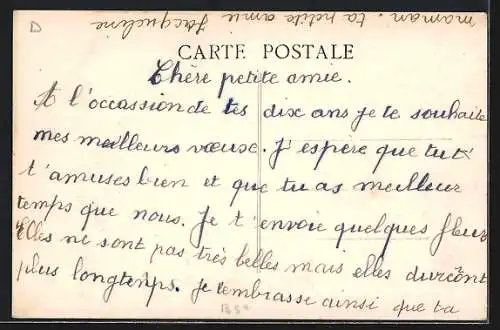 D
CARTE POSTALE
Chère petite amie.
A l'occassion de tes dix ans je te souhaite
mes meilleurs vœuse. J'espère que tu t'
t'amuses bien et que tu as meilleur
temps que nous. Je t'envoie quelques fleurs
Elles ne sont pas très belles mais elles dureront
plus longtemps. Je t'embrasse ainsi que ta
maman. ta petite amie Jacqueline